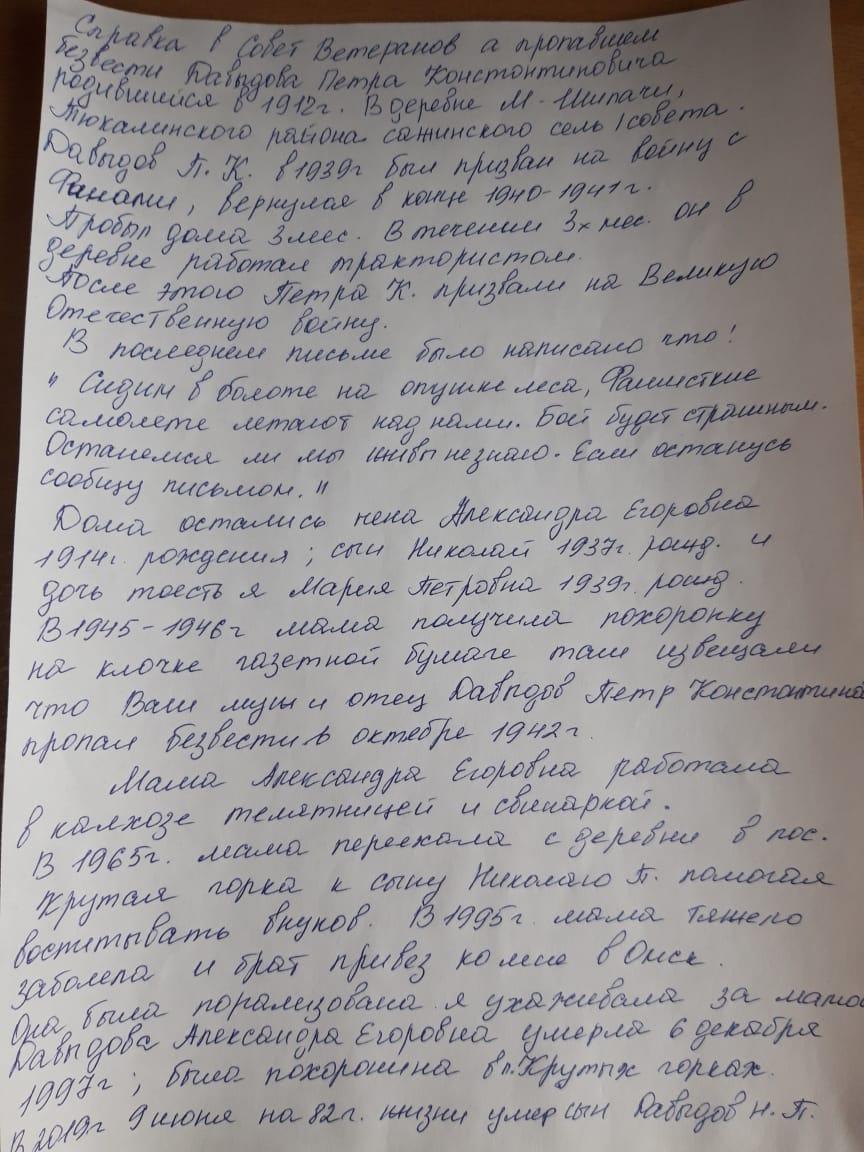 Справка в Совет Ветеранов а пропавшем
безвести Давыдова Петра Константиновича
родившийся в 1912г. В деревне М-Шипачи,
Тюкалинского района сажинского сель/совета.
Давыдов П. К. в 1939г был призван на войну с
Фанами, вернулся в конце 1940-1941г.
Пробыл дома 3 мес. В течении 3х мес. он в
деревне работал трактористом.
После этого Петра К. призвали на Великую
Отечественную войну.
В последнем письме было написано что!
" Сидим в болоте на опушке леса, Фашисткие
самолете летают над нами. Бой будет страшным.
Останемся ли мы живы незнаю. Если останусь
сообщу письмом."
Дома остались жена Александра Егоровна
1914г. рождения; сын Николай 1937г. рожд. и
дочь тоесть я Мария Петровна 1939г. рожд.
В 1945-1946г мама получила похоронку
на клочке газетной бумаге там извещали
что Ваш муж и отец Давыдов Петр Константинов
пропал безвести в октебре 1942г.
Мама Александра Егоровна работала
в калхозе телятницей и свинаркой.
В 1965г. мама переехала с деревни в пос.
Крутая горка к сыну Николаю П. помогая
воспитывать внуков. В 1995г. мама тяжело
заболела и брат привез ко мне в Омск.
Она была порализована я ухаживала за мамой
Давыдова Александра Егоровна умерла 6 декабря
1997г; была похоронина в п.Крутых горках.
В 2019г 9 июня на 82г. жизни умер сын Давыдов Н. П.